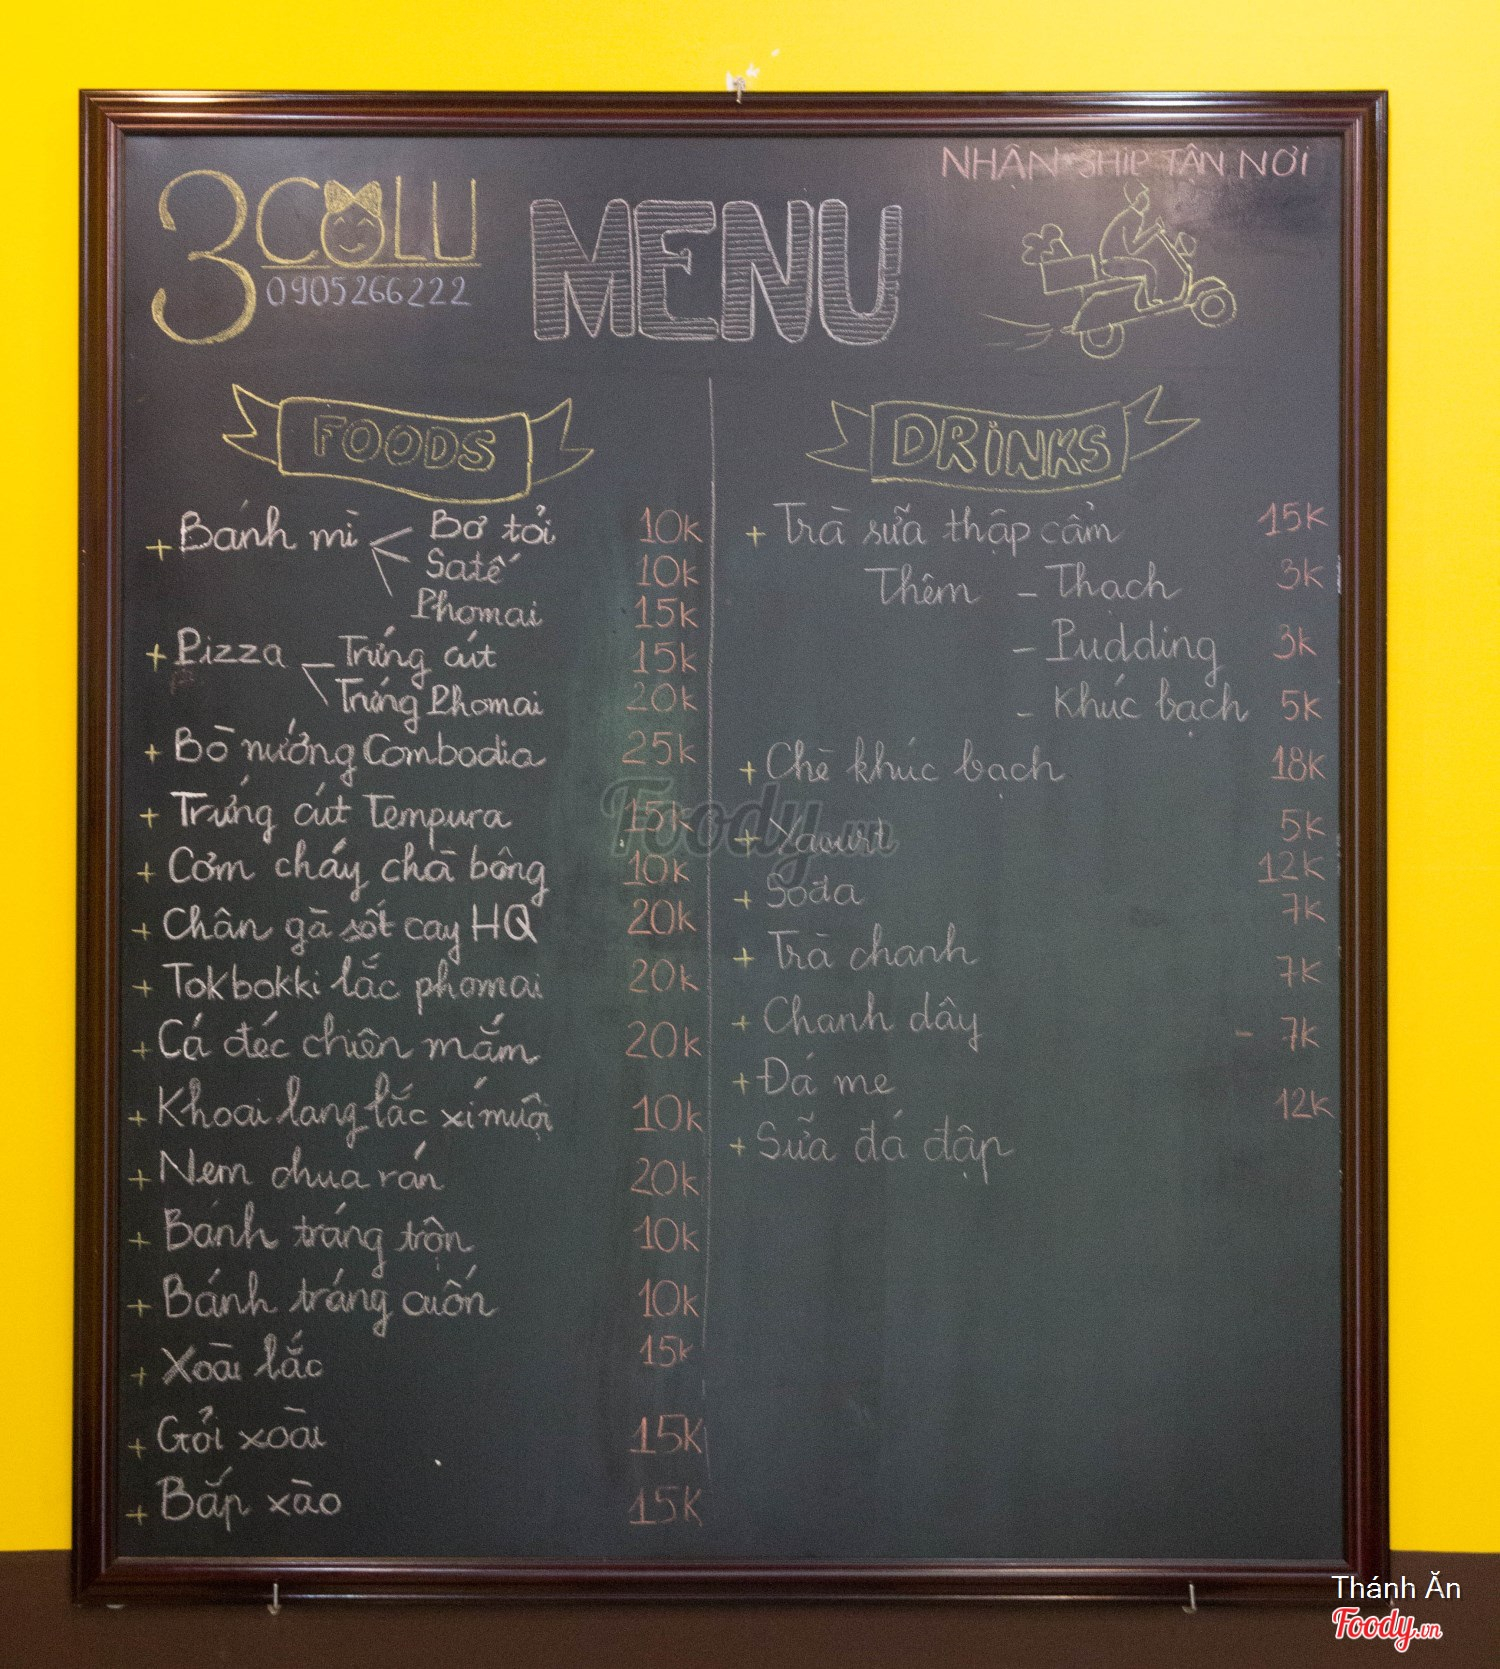 3 COLU
0905266222
MENU
NHẬN SHIP TẬN NƠI
FOODS
+ Bánh mì Bơ tỏi 10k
Satế 10k
Phomai 15k
+ Pizza - Trứng cút 15k
Trứng Phomai 20k
+ Bò nướng Combodia 25k
+ Trứng cút Tempura 15k
+ Cơm cháy chà bông 10k
+ Chân gà sốt cay HQ 20k
+ Tokbokki lắc phomai 20k
+ Cá đéc chiên mắm 20k
+ Khoai lang lắc xí muội 10k
+ Nem chua rán 20k
+ Bánh tráng trộn 10k
+ Bánh tráng cuốn 10k
+ Xoài lắc 15k
+ Gỏi xoài 15K
+ Bắp xào 15K
DRINKS
+ Trà sữa thập cẩm 15K
Thêm - Thạch 3k
- Pudding 3k
- Khúc bạch 5k
+ Chè khúc bạch 18k
+ Yaourt 5k
+ Sođa 12k
+ Trà chanh 7k
+ Chanh dây 7k
+ Đá me - 7k
+ Sữa đá đập 12k
Foody.vn
Thánh Ăn
Foody.vn